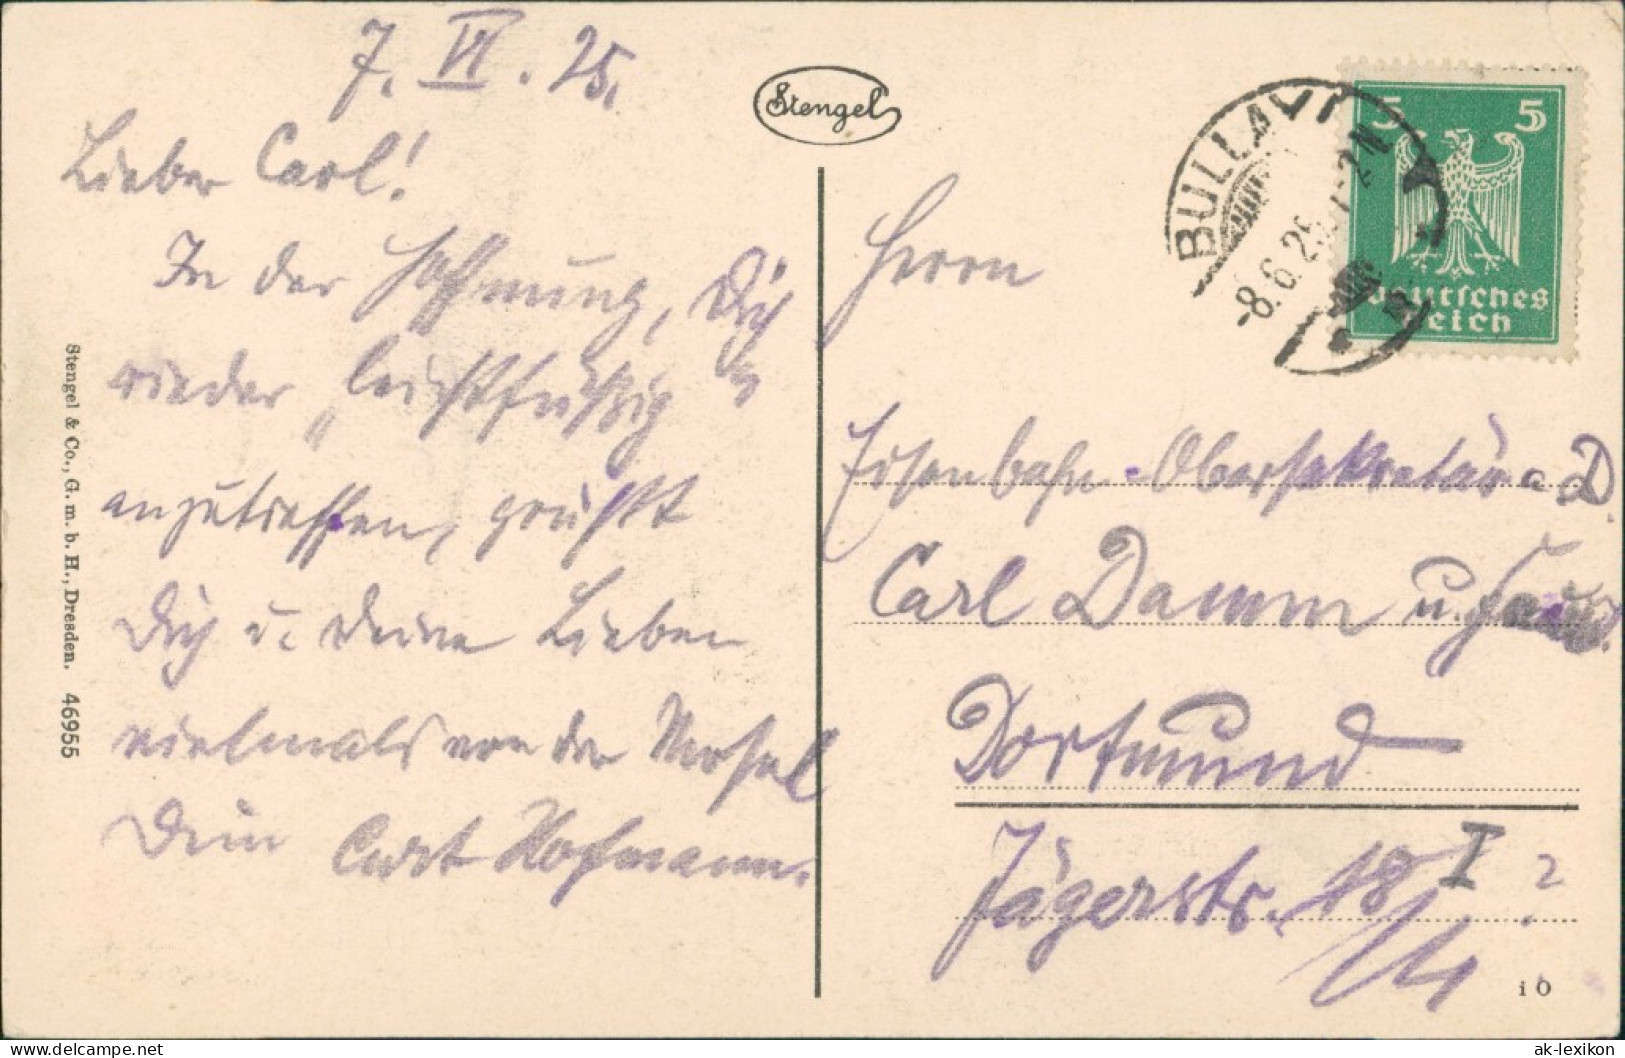 7. VI. 25.
Lieber Carl!
In der Hoffnung, Dich
wieder „leichtfüßig“
anzutreffen, grüßt
Dich u. Deine Lieben
vielmals von der Mosel
Dein Curt Hofmann.
Stengel & Co., G. m. b. H., Dresden. 46955
Stengel
BULLAY
-8.6.25
5 5
Deutsches
Reich
Herrn
Eisenbahn-Obersekretär a D.
Carl Damm u.
Dortmund
Jägerstr. 18 I ?
i O
delcampe.net
ak-lexikon